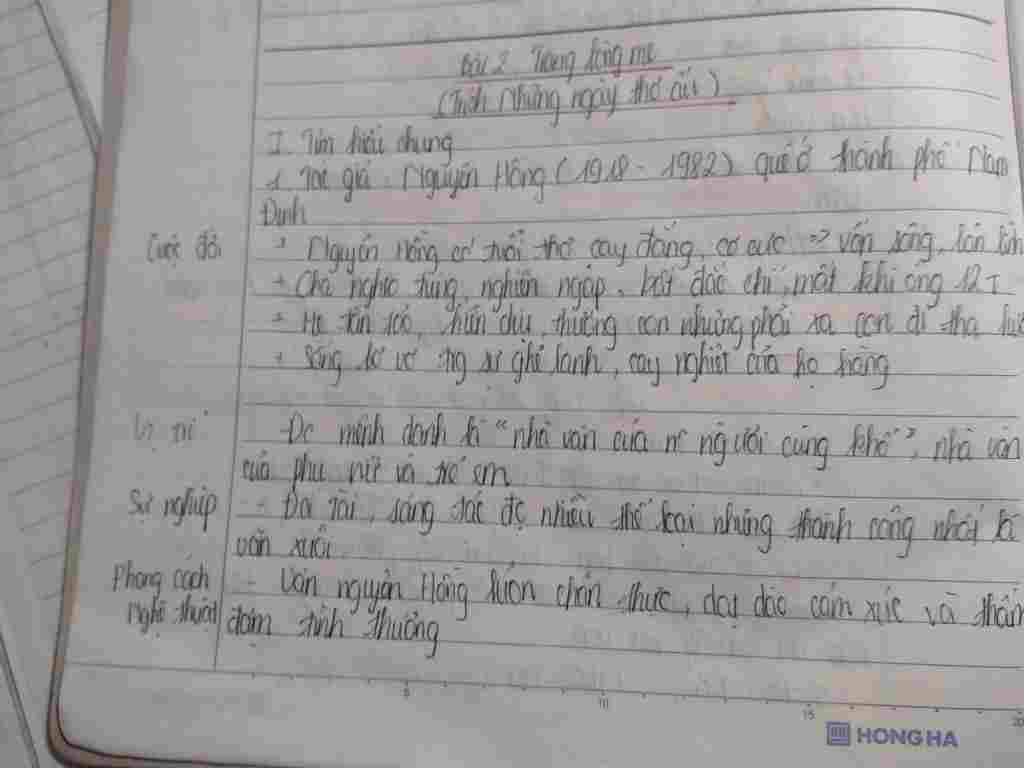 Bài 2 Trong lòng mẹ
(Trích Những ngày thơ ấu)
I. Tìm hiểu chung
1. Tác giả Nguyên Hồng (1918 - 1982) quê ở thành phố Nam
Định
Cuộc đời + Nguyên Hồng có tuổi thơ cay đắng, cơ cực => vốn sống,
+ Cha nghiện ngập, bất đắc chí, mất khi ông 12T
+ Mẹ tần tảo, hiền dịu, thương con nhưng phải xa con đi tha
+ Sống bơ vơ trg sự ghẻ lạnh, cay nghiệt của họ hàng
Vị trí - Đc mệnh danh là "nhà văn của n~ người cùng khổ", nhà văn
của phụ nữ và trẻ em
Sự nghiệp - Đa tài, sáng tác đc nhiều thể loại nhưng thành công nhất là
văn xuôi.
Phong cách - Văn nguyên Hồng luôn chân thực, dạt dào cảm xúc và thấm
Nghệ thuật đẫm tình thương
5 10 15 20
HONG HA